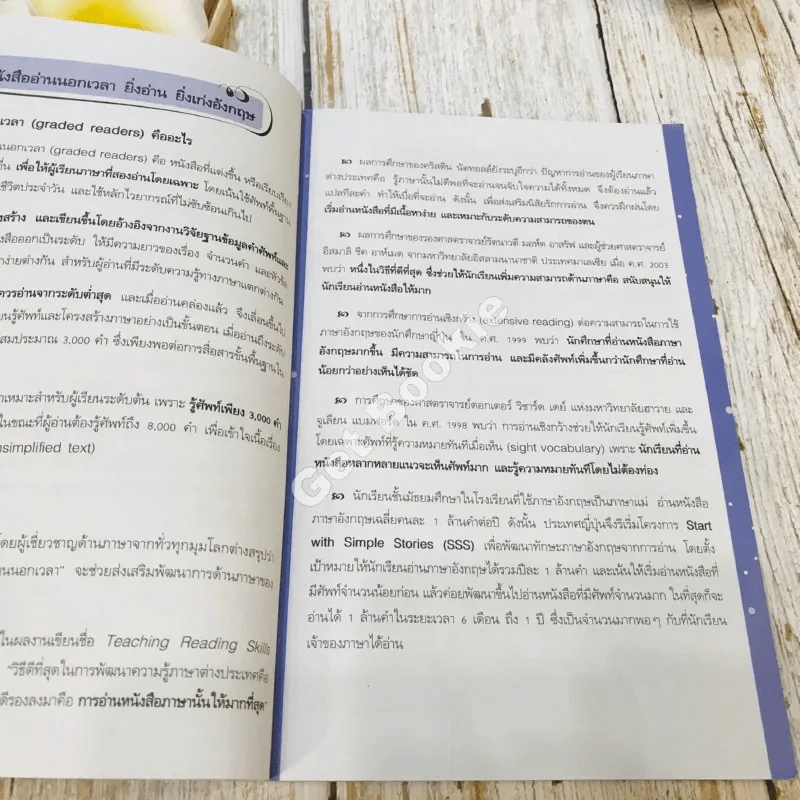 หนังสืออ่านนอกเวลา ยิ่งอ่าน ยิ่งเก่งอังกฤษ
เวลา (graded readers) คืออะไร
นนอกเวลา (graded readers) คือ หนังสือที่แต่งขึ้น หรือเรียบเรียง
ขึ้น เพื่อให้ผู้เรียนภาษาที่สองอ่านโดยเฉพาะ โดยเน้นใช้ศัพท์พื้นฐาน
ชีวิตประจำวัน และใช้หลักไวยากรณ์ที่ไม่ซับซ้อนเกินไป
สร้าง และเขียนขึ้นโดยอ้างอิงจากงานวิจัยฐานข้อมูลคำศัพท์และ
สือออกเป็นระดับ ให้มีความยาวของเรื่อง จำนวนคำ และหัวข้อ
ง่ายต่างกัน สำหรับผู้อ่านที่มีระดับความรู้ทางภาษาแตกต่างกัน
ควรอ่านจากระดับต่ำสุด และเมื่ออ่านคล่องแล้ว จึงเลื่อนขึ้นไป
ยนรู้ศัพท์และโครงสร้างภาษาอย่างเป็นขั้นตอน เมื่ออ่านถึงระดับ
สมประมาณ 3,000 คำ ซึ่งเพียงพอต่อการสื่อสารขั้นพื้นฐานใน
าเหมาะสำหรับผู้เรียนระดับต้น เพราะ รู้ศัพท์เพียง 3,000 คำ
ในขณะที่ผู้อ่านต้องรู้ศัพท์ถึง 8,000 คำ เพื่อเข้าใจเนื้อเรื่อง
nsimplified text)
โดยผู้เชี่ยวชาญด้านภาษาจากทั่วทุกมุมโลกต่างสรุปว่า
านนอกเวลา" จะช่วยส่งเสริมพัฒนาการด้านภาษาของ
ในผลงานเขียนชื่อ Teaching Reading Skills
"วิธีดีที่สุดในการพัฒนาความรู้ภาษาต่างประเทศคือ
ดีรองลงมาคือ การอ่านหนังสือภาษานั้นให้มากที่สุด"
ผลการศึกษาของคริสติน นัตทอลล์ยังระบุอีกว่า ปัญหาการอ่านของผู้เรียนภาษา
ต่างประเทศคือ รู้ภาษานั้นไม่ดีพอที่จะอ่านจนจับใจความได้ทั้งหมด จึงต้องอ่านแล้ว
แปลทีละคำ ทำให้เบื่อที่จะอ่าน ดังนั้น เพื่อส่งเสริมนิสัยรักการอ่าน จึงควรฝึกฝนโดย
เริ่มอ่านหนังสือที่มีเนื้อหาง่าย และเหมาะกับระดับความสามารถของตน
ผลการศึกษาของรองศาสตราจารย์รัตนาวตี มอห์ด อาสรัฟ และผู้ช่วยศาสตราจารย์
อิสมาลี ชิค อาห์เมด จากมหาวิทยาลัยอิสลามนานาชาติ ประเทศมาเลเซีย เมื่อ ค.ศ. 2003
พบว่า หนึ่งในวิธีที่ดีที่สุด ซึ่งช่วยให้นักเรียนเพิ่มความสามารถด้านภาษาคือ สนับสนุนให้
นักเรียนอ่านหนังสือให้มาก
จากการศึกษาการอ่านเชิงกว้าง (extensive reading) ต่อความสามารถในการใช้
ภาษาอังกฤษของนักศึกษาญี่ปุ่น ใน ค.ศ. 1999 พบว่า นักศึกษาที่อ่านหนังสือภาษา
อังกฤษมากขึ้น มีความสามารถในการอ่าน และมีคลังศัพท์เพิ่มขึ้นกว่านักศึกษาที่อ่าน
น้อยกว่าอย่างเห็นได้ชัด
การศึกษาของศาสตราจารย์ดอกเตอร์ ริชาร์ด เดย์ แห่งมหาวิทยาลัยฮาวาย และ
จูเลียน แบมฟอร์ด ใน ค.ศ. 1998 พบว่า การอ่านเชิงกว้างช่วยให้นักเรียนรู้ศัพท์เพิ่มขึ้น
โดยเฉพาะศัพท์ที่รู้ความหมายทันทีเมื่อเห็น (sight vocabulary) เพราะ นักเรียนที่อ่าน
หนังสือหลากหลายแนวจะเห็นศัพท์มาก และรู้ความหมายทันทีโดยไม่ต้องท่อง
นักเรียนชั้นมัธยมศึกษาในโรงเรียนที่ใช้ภาษาอังกฤษเป็นภาษาแม่ อ่านหนังสือ
ภาษาอังกฤษเฉลี่ยคนละ 1 ล้านคำต่อปี ดังนั้น ประเทศญี่ปุ่นจึงริเริ่มโครงการ Start
with Simple Stories (SSS) เพื่อพัฒนาทักษะภาษาอังกฤษจากการอ่าน โดยตั้ง
เป้าหมายให้นักเรียนอ่านภาษาอังกฤษได้รวมปีละ 1 ล้านคำ และเน้นให้เริ่มอ่านหนังสือที่
มีศัพท์จำนวนน้อยก่อน แล้วค่อยพัฒนาขึ้นไปอ่านหนังสือที่มีศัพท์จำนวนมาก ในที่สุดก็จะ
อ่านได้ 1 ล้านคำในระยะเวลา 6 เดือน ถึง 1 ปี ซึ่งเป็นจำนวนมากพอๆ กับที่นักเรียน
เจ้าของภาษาได้อ่าน
Get Bookie